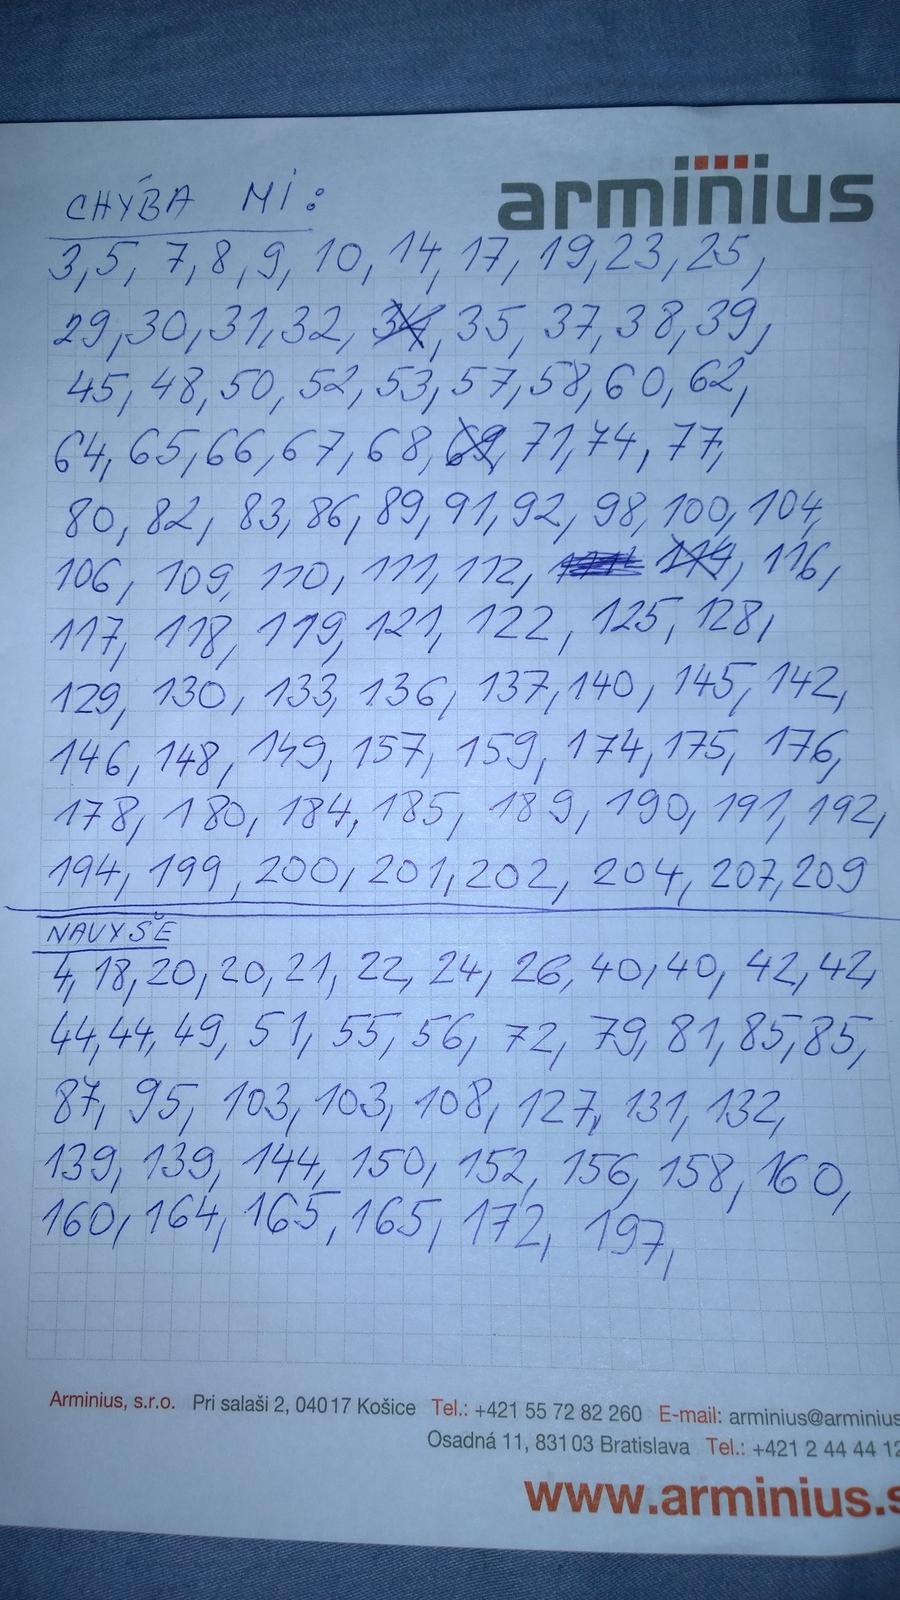 arminius
CHÝBA MI:
3, 5, 7, 8, 9, 10, 14, 17, 19, 23, 25,
29, 30, 31, 32, 34, 35, 37, 38, 39,
45, 48, 50, 52, 53, 57, 58, 60, 62,
64, 65, 66, 67, 68, 69, 71, 74, 77,
80, 82, 83, 86, 89, 91, 92, 98, 100, 104,
106, 109, 110, 111, 112, 114, 116,
117, 118, 119, 121, 122, 125, 128,
129, 130, 133, 136, 137, 140, 145, 142,
146, 148, 149, 157, 159, 174, 175, 176,
178, 180, 184, 185, 189, 190, 191, 192,
194, 199, 200, 201, 202, 204, 207, 209
NAVYŠE
4, 18, 20, 20, 21, 22, 24, 26, 40, 40, 42, 42,
44, 44, 49, 51, 55, 56, 72, 79, 81, 85, 85,
87, 95, 103, 103, 108, 127, 131, 132,
139, 139, 144, 150, 152, 156, 158, 160,
160, 164, 165, 165, 172, 197,
Arminius, s.r.o. Pri salaši 2, 040 17 Košice Tel.: +421 55 72 82 260 E-mail: arminius@arminius
Osadná 11, 831 03 Bratislava Tel.: +421 2 44 44 12
www.arminius.s